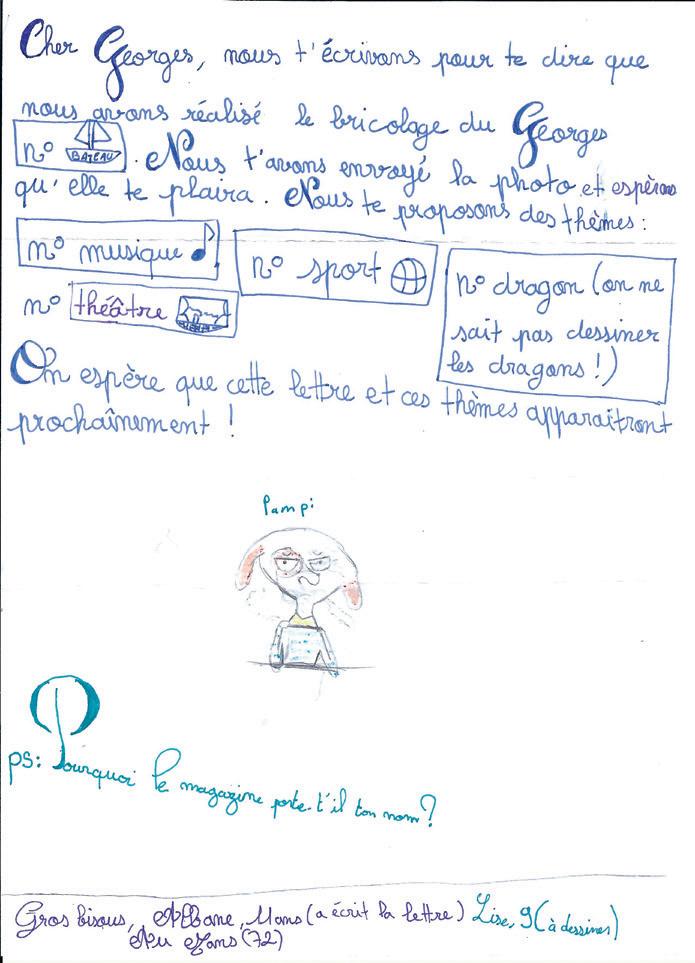 Cher Georges, nous t'écrivons pour te dire que
nous avons réalisé le bricolage du Georges
n° BATEAU . Nous t'avons envoyé la photo et espérons
qu'elle te plaira. Nous te proposons des thèmes :
n° musique
n° sport
n° dragon (on ne
sait pas dessiner
les dragons !)
n° théâtre
On espère que cette lettre et ces thèmes apparaîtront
prochaînement !
Pampi
ps: Pourquoi le magazine porte-t'il ton nom ?
Gros bisous, Albane, 11 ans (a écrit la lettre) Lise, 9 (à dessiner)
Au Mans (72)